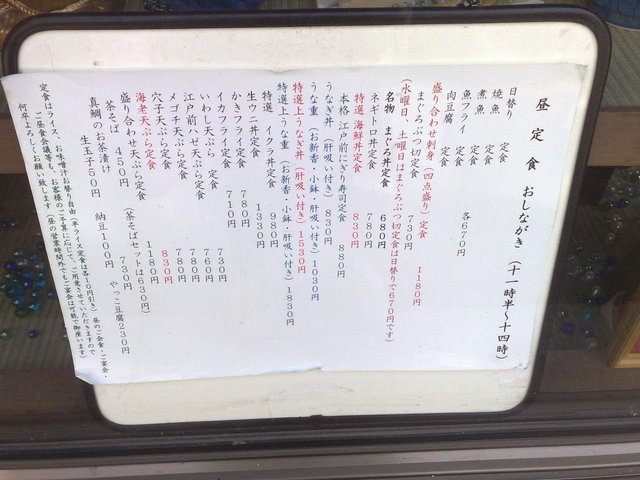 昼定食 おしながき (十一時半〜十四時)
日替り 定食
焼魚 定食
煮魚 定食
魚フライ 定食
肉豆腐 定食 各670円
盛り合わせ刺身(四点盛り)定食 1180円
まぐろぶつ切定食 730円
(水曜日、土曜日はまぐろぶつ切定食は日替りで670円です)
名物 まぐろ丼定食 680円
ネギトロ丼定食 780円
特選 海鮮丼定食 830円
本格 江戸前にぎり寿司定食 880円
うなぎ丼(肝吸い付き) 830円
うな重(お新香・小鉢・肝吸い付き)1030円
特選上うなぎ丼(肝吸い付き)1530円
特選上うな重(お新香・小鉢・肝吸い付き)1830円
特選 イクラ丼定食 980円
生ウニ丼定食 1330円
かきフライ定食 780円
イカフライ定食 710円
いわし天ぷら 定食 730円
江戸前ハゼ天ぷら定食 760円
メゴチ天ぷら定食 780円
穴子天ぷら定食 780円
海老天ぷら定食 830円
盛り合わせ天ぷら定食 1180円
茶そば 450円 (茶そばセットは630円)
真鯛のお茶漬け 730円
生玉子50円 納豆100円 やっこ豆腐230円
定食はライス、お味噌汁お替り自由(半ライス定食は各10円引き)昼のご会食・ご宴会・
ご昼食会議等も、お客様のご予算に応じて、ご用意させていただきますので
何卒よろしくお願い致します (昼の営業時間外でもご宴会は可能で御座います)